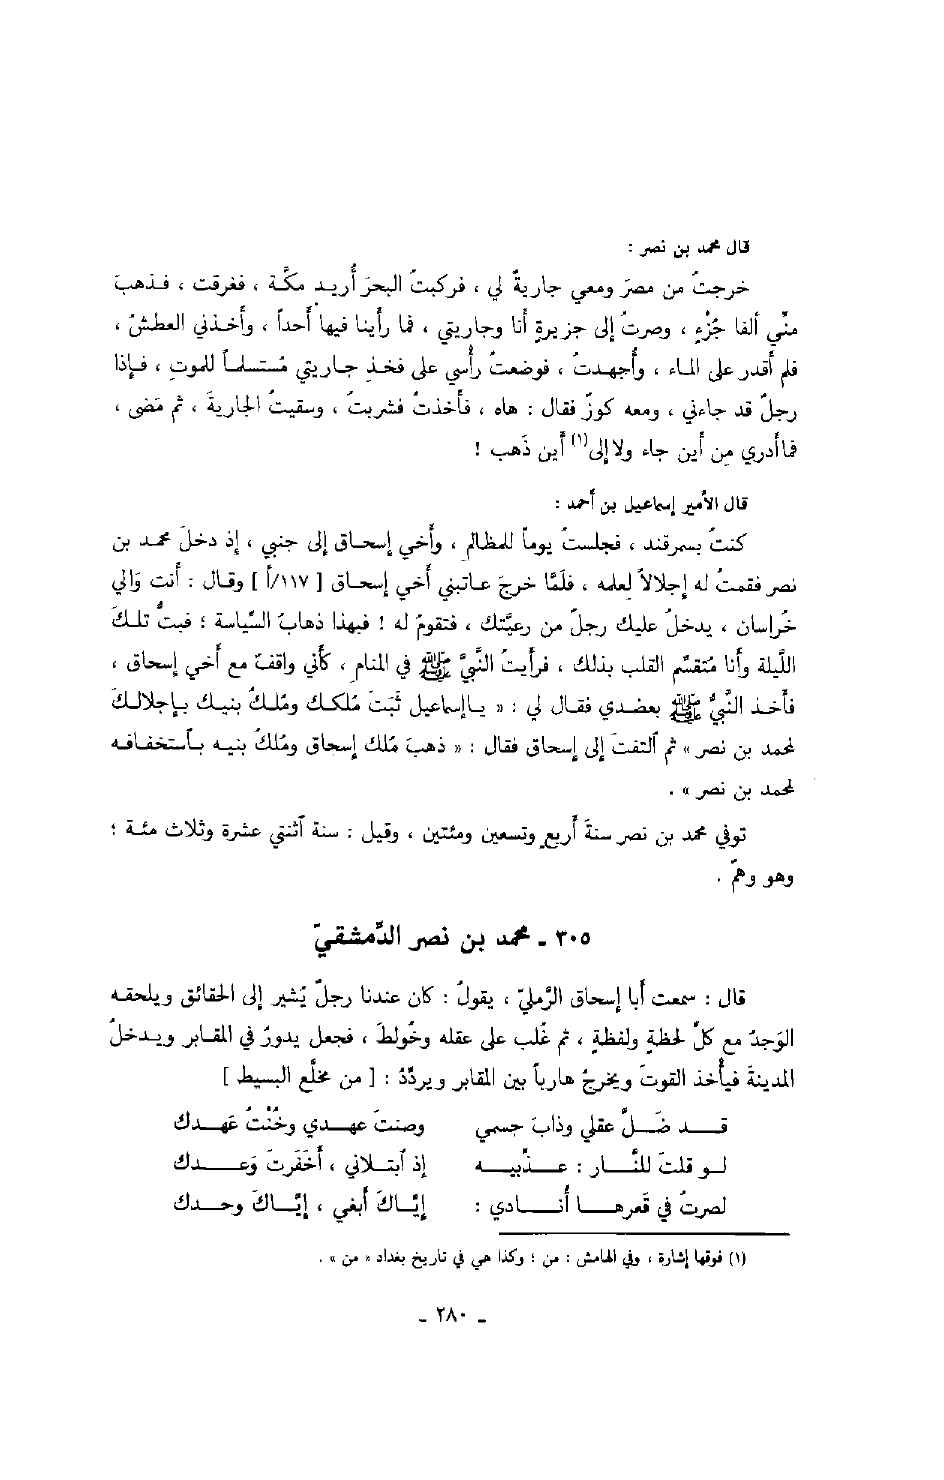 قال محمد بن نصر :
خرجتُ من مصرَ ومعي جاريةٌ لي ، فركبتُ البحرَ أُريـد مكَّـة ، فغرقت ، فـذهبَ
منّي ألفا جُزْءٍ ، وصرتُ إلى جزيرةٍ أنا وجاريتي ، فما رأينا فيها أحداً ، وأخذني العطشُ ،
فلم أقدر على المـاء ، وأُجهـدتُ ، فوضعتُ رأسي على فخـذِ جـاريتي مُستسلمـاً للموتِ ، فـإذا
رجلٌ قد جاءني ، ومعه كوزٌ فقال : هاه ، فأخذتُ فشربتُ ، وسقيتُ الجاريةَ ، ثم مَضى ،
فما أدري مِن أين جاء ولا إلى(١) أين ذَهب !
قال الأمير إسماعيل بن أحمد :
كنتُ بسمرقند ، فجلستُ يوماً للمظالم ، وأخي إسحـاق إلى جنبي ، إذ دخلَ محمـد بن
نصر فقمتُ له إجلالاً لعلمه ، فلمّا خرجَ عـاتبني أخي إسحـاق [ ١١٧/أ ] وقـال : أنت وَالي
خُراسان ، يدخلُ عليك رجلٌ من رعيّتك ، فتقومُ له ! فبهذا ذهابُ السِّياسة ؛ فبتُّ تلـكَ
اللَّيلة وأنا مُتقسِّم القلب بذلك ، فرأيتُ النَّبيَّ ﷺ في المنام ، كأني واقفٌ مع أخي إسحاق ،
فأخـذ النَّبيُّ ﷺ بعضـدي فقـال لي : « يـاإسماعيل ثَبَتَ مُلكـك ومُلـكُ بنيـك بـإجلالـكَ
لمحمد بن نصر » ثم ٱلتفتَ إلى إسحاق فقال : « ذهبَ مُلك إسحاق ومُلكُ بنيه بـٱستخفـافـه
لمحمـد بن نصر » .
توفي محمد بن نصر سنةَ أربعٍ وتسعين ومئتين ، وقيل : سنة ٱثنتي عشرة وثلاث مئـة ؛
وهو وهمٌ .
٣٠٥ ـ محمد بن نصر الدِّمشقيّ
قال : سمعت أبا إسحاق الرَّمليّ ، يقولُ : كان عندنا رجلٌ يُشير إلى الحقائق ويلحقـه
الوَجدُ مع كلِّ لحظةٍ ولفظةٍ ، ثم غُلب على عقله وخُولطَ ، فجعل يدورُ في المقـابر ويـدخلُ
المدينةَ فيأخذ القوتَ ويخرجُ هارباً بين المقابر ويردّدُ : [ من مخلّع البسيط ]
قـــد ضَـــلَّ عقلي وذابَ جسمي وصنتَ عهـــدي وخُنْتُ عَهـــدك
لـو قلتَ للنَّـــار : عـــذِّبيـــه إذ ٱبتـلاني ، أَخفَرتَ وَعـــدك
لصرتُ في قعرهـــا أُنـــادي : إيَّـاكَ أَبغي ، إيَّـاكَ وحـدك
(١) فوقها إشارة ، وفي الهامش : من ؛ وكذا هي في تاريخ بغداد « من » .
ـ ٢٨٠ ـ